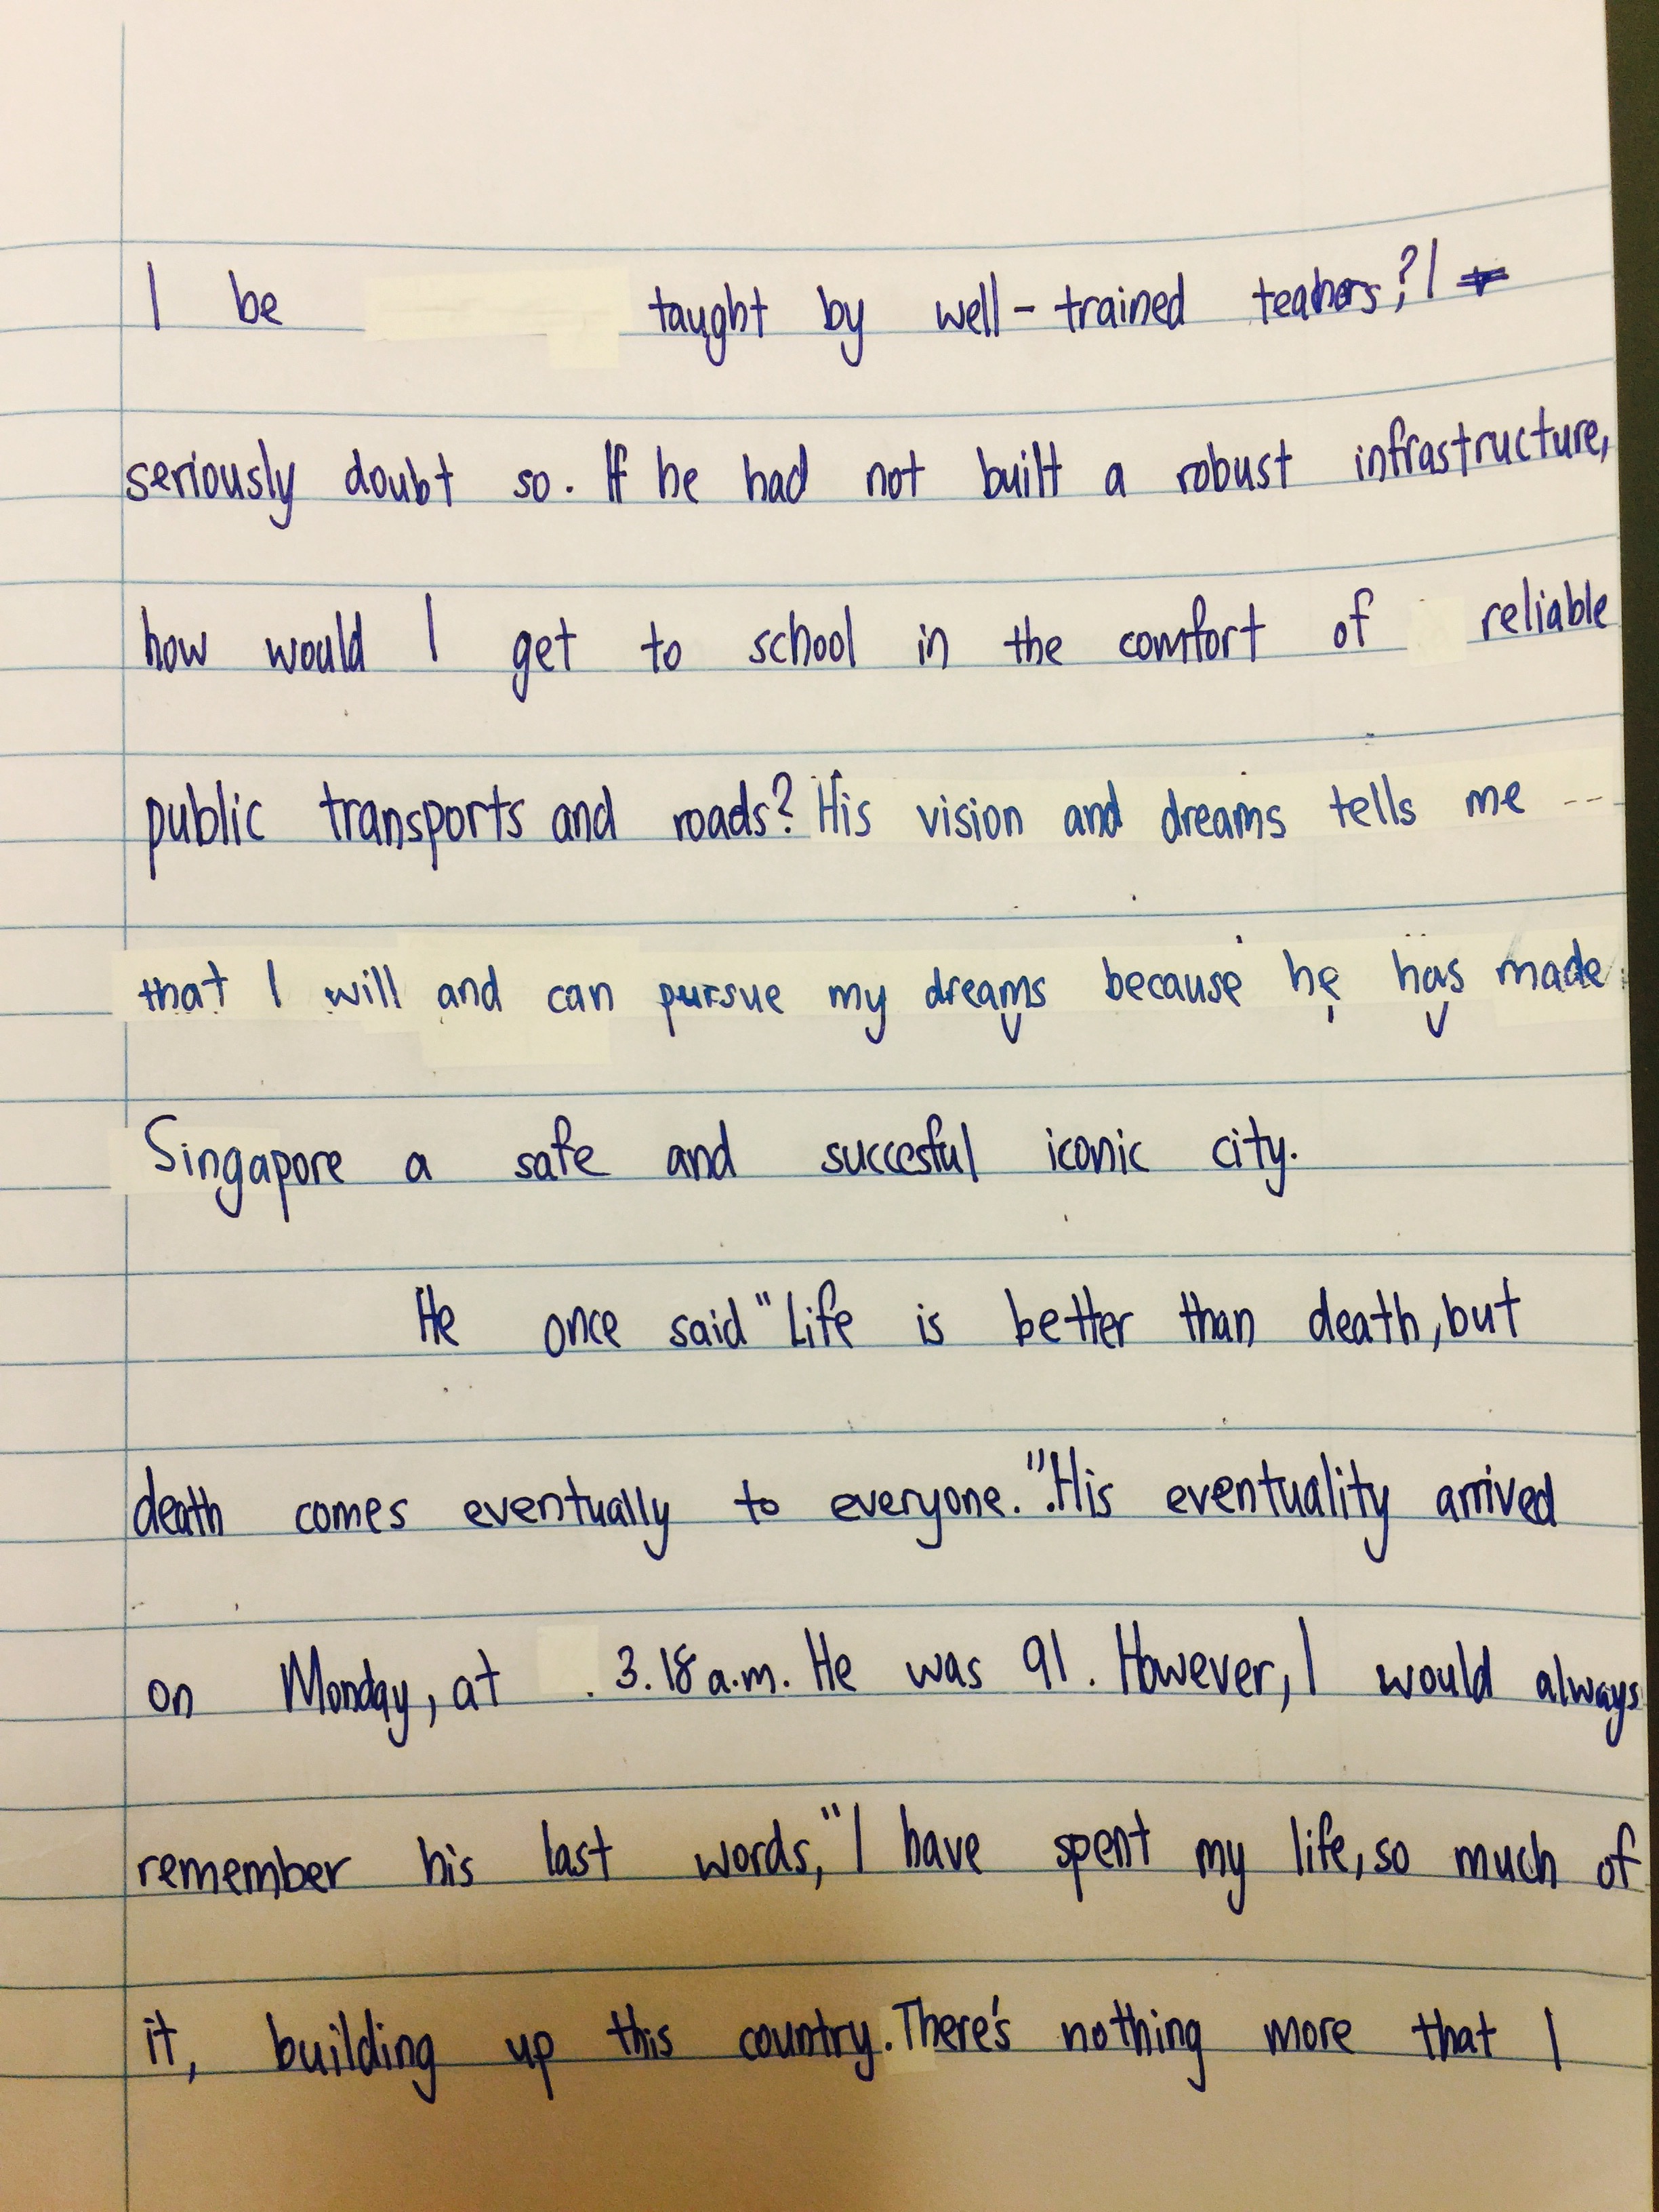 I be taught by well-trained teachers? I
seriously doubt so. If he had not built a robust infrastructure,
how would I get to school in the comfort of reliable
public transports and roads? His vision and dreams tells me --
that I will and can pursue my dreams because he has made
Singapore a safe and succesful iconic city.
He once said "Life is better than death, but
death comes eventually to everyone.". His eventuality arrived
on Monday, at 3.18 a.m. He was 91. However, I would always
remember his last words, "I have spent my life, so much of
it, building up this country. There's nothing more that I